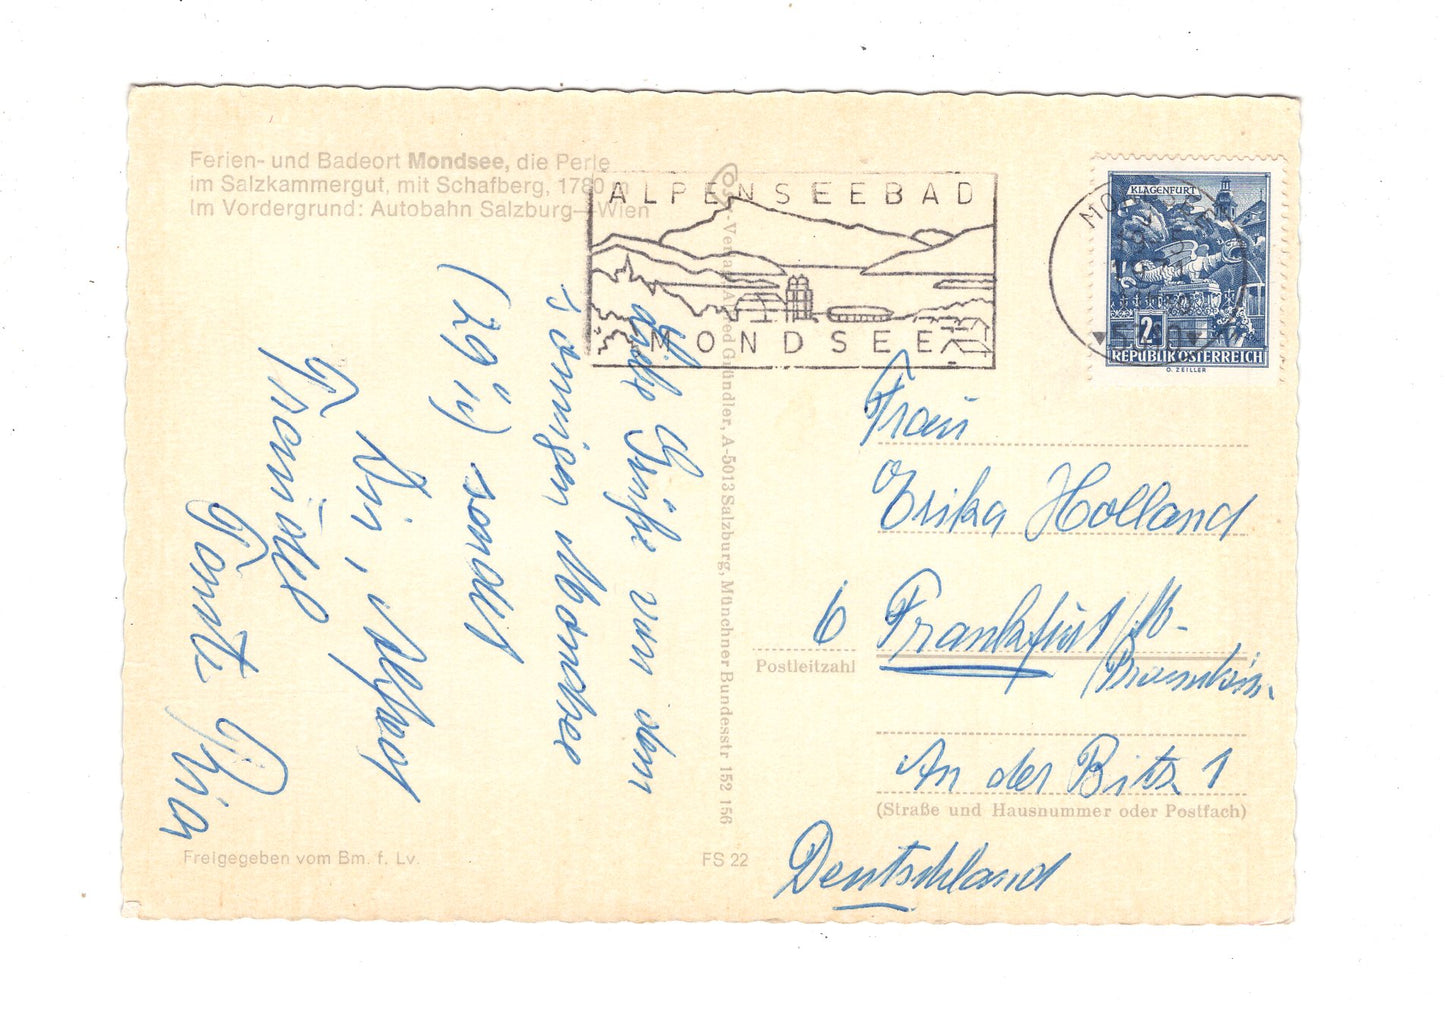 Ferien- und Badeort Mondsee, die Perle
im Salzkammergut, mit Schafberg, 1780 m
Im Vordergrund: Autobahn Salzburg—Wien
ALPENSEEBAD
MONDSEE
KLAGENFURT
2
REPUBLIK ÖSTERREICH
O. ZEILLER
Liebe Grüße von dem
sonnigen Mondsee
sendet
Tante Ria
Gründler, A-5013 Salzburg, Münchner Bundesstr 152 156
Frau
Erika Holland
6 Frankfurt/M-
Postleitzahl
An der Bitz 1
(Straße und Hausnummer oder Postfach)
Deutschland
Freigegeben vom Bm. f. Lv.
FS 22